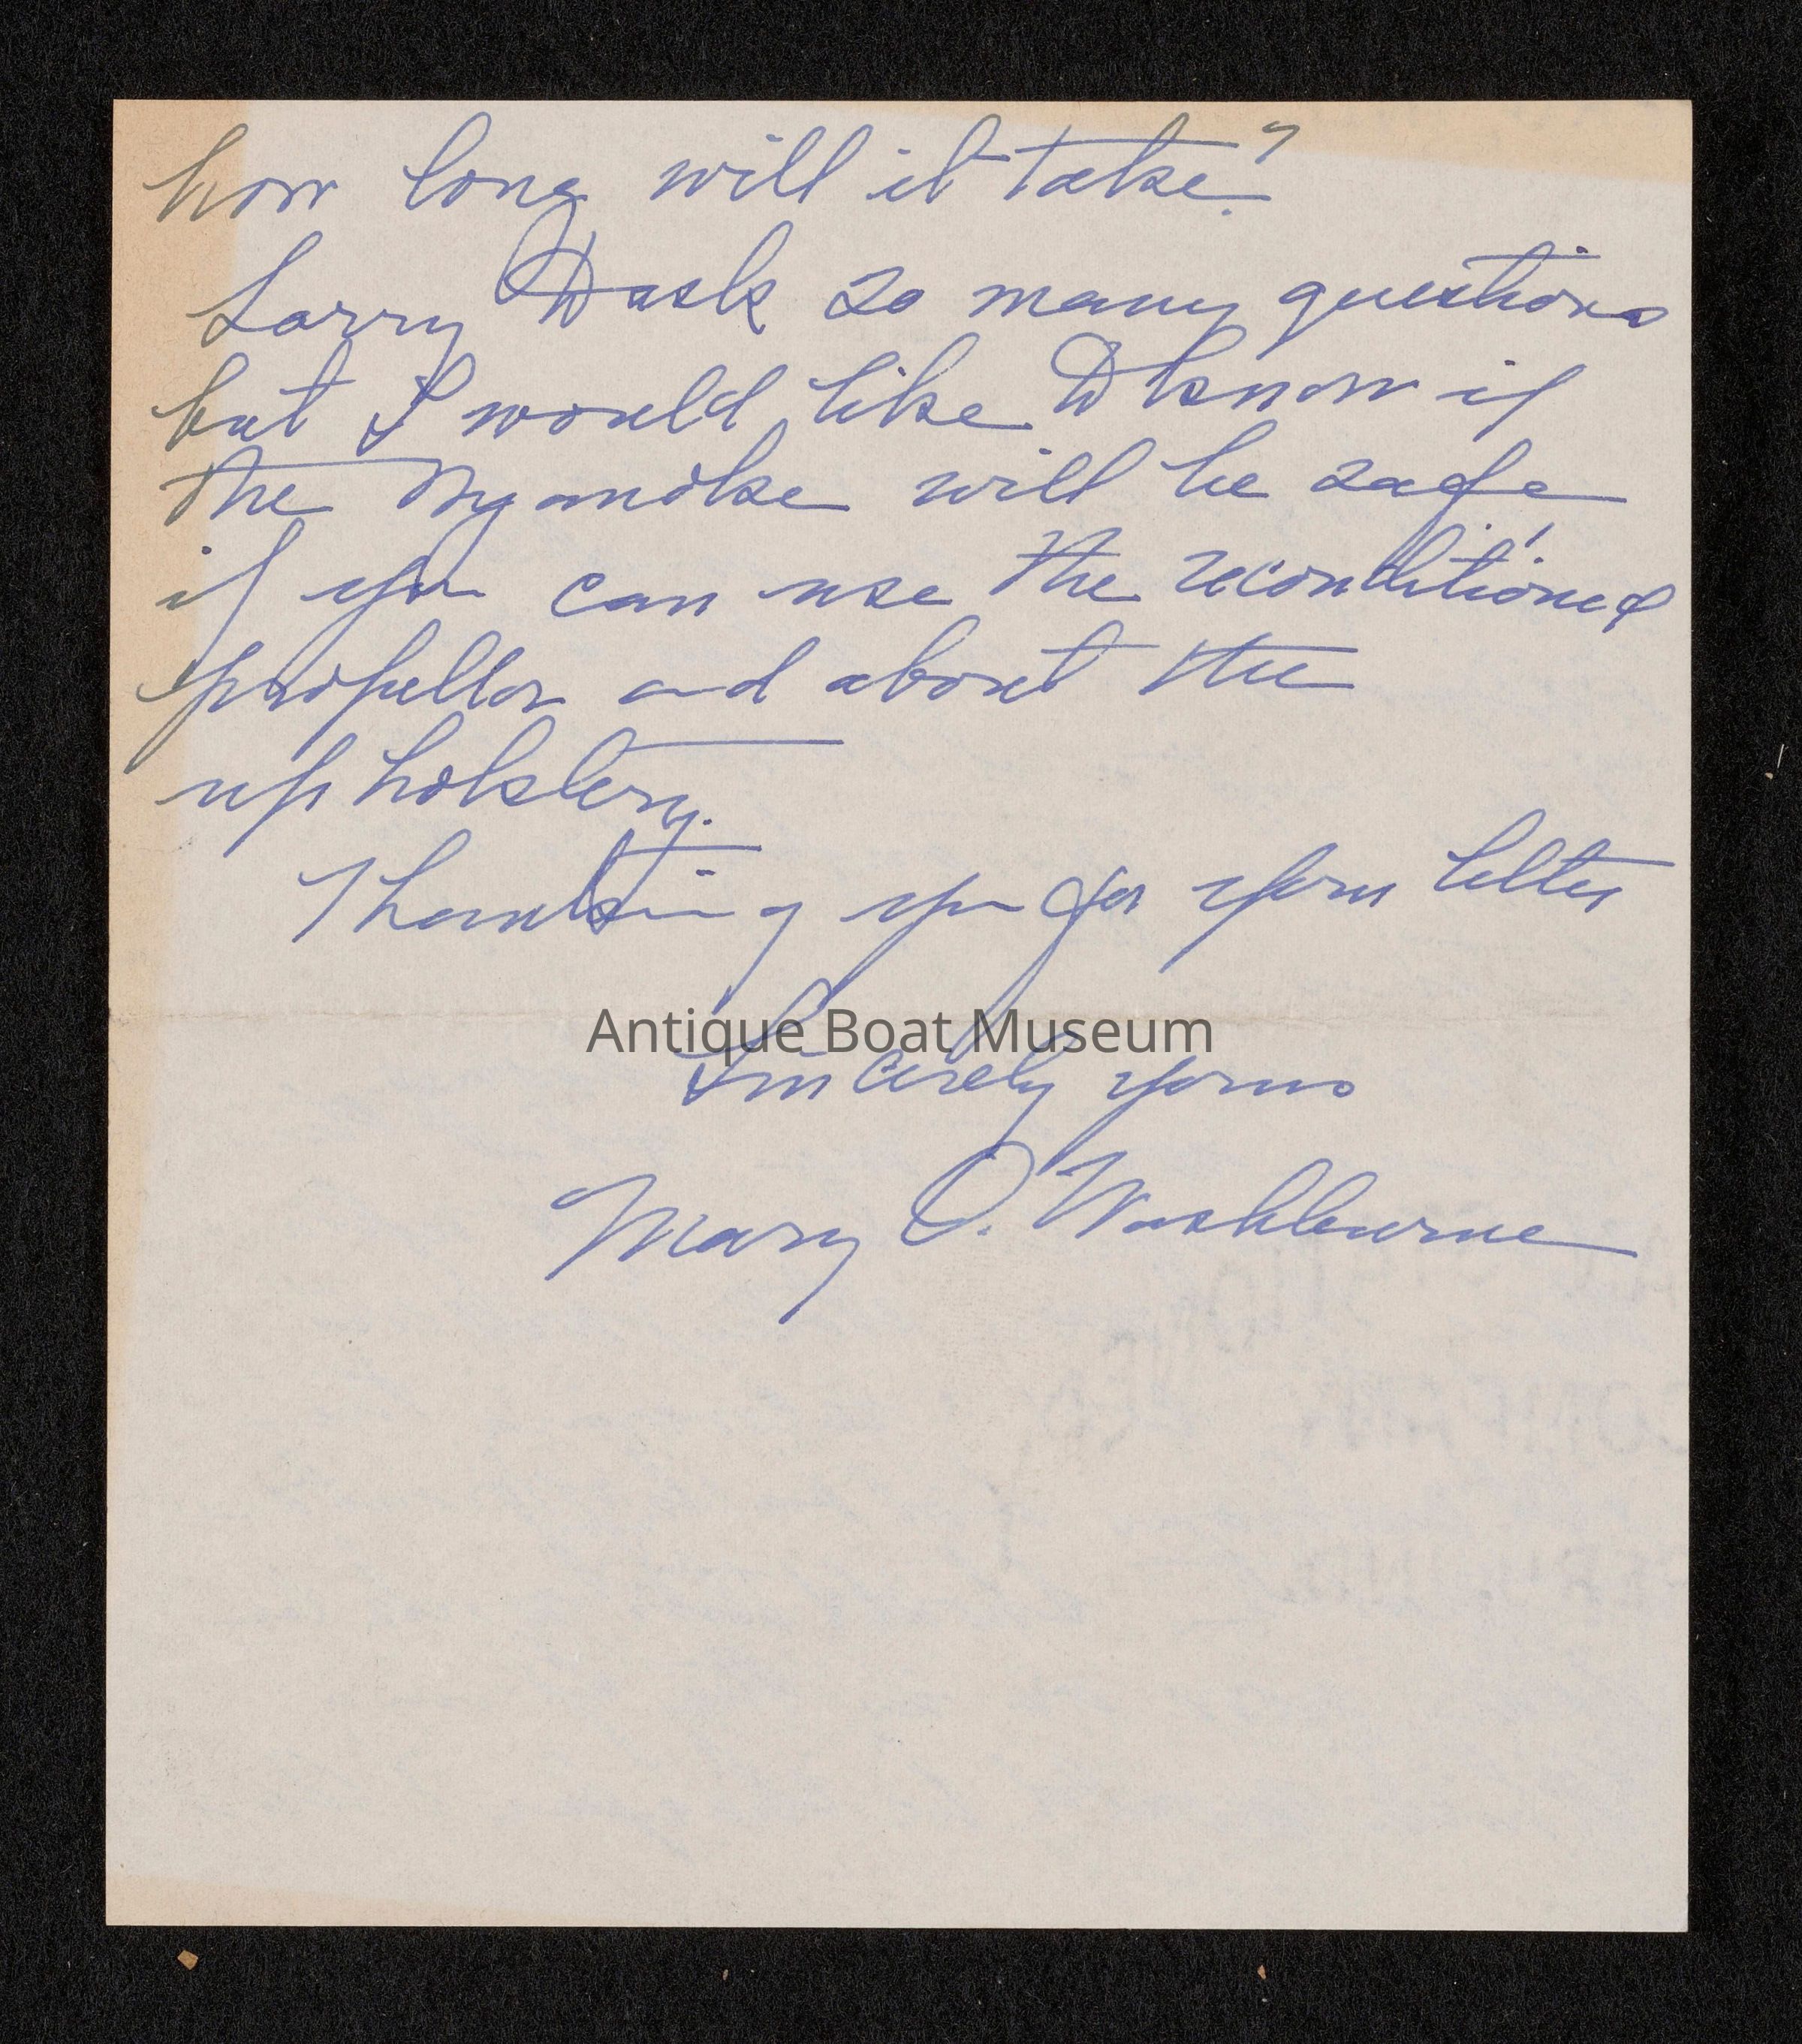 how long will it take?
Sorry to ask so many questions
but I would like to know if
the will be safe
if you can use the reconditioned
propellor and about the
upholstery.
Thanking you for your letter
Antique Boat Museum
Sincerely yours
Mary O. Washburne